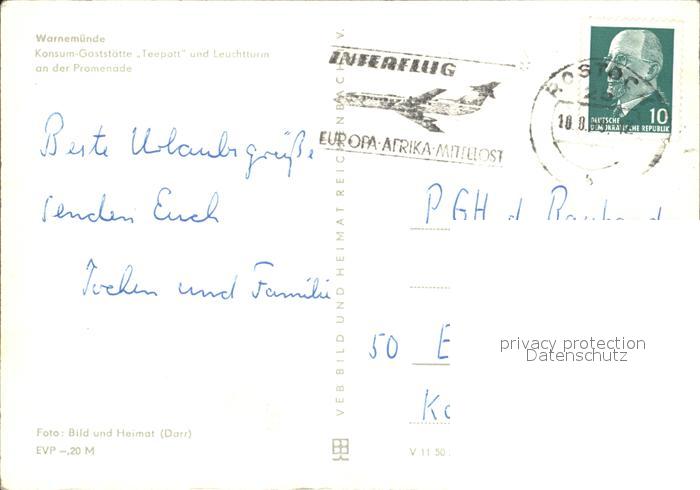 Warnemünde
Konsum-Gaststätte „Teepott" und Leuchtturm
an der Promenade
INTERFLUG
EUROPA·AFRIKA·MITTELOST
ROSTOC
25
18.8.
DEUTSCHE 10
DEMOKRATISCHE REPUBLIK
Beste Urlaubsgrüße
senden Euch
Jochen und Familie
VEB BILD UND HEIMAT REICHENBACH V.
PGH d.
50 E
privacy protection
Datenschutz
Foto: Bild und Heimat (Darr)
EVP –,20 M
V 11 50